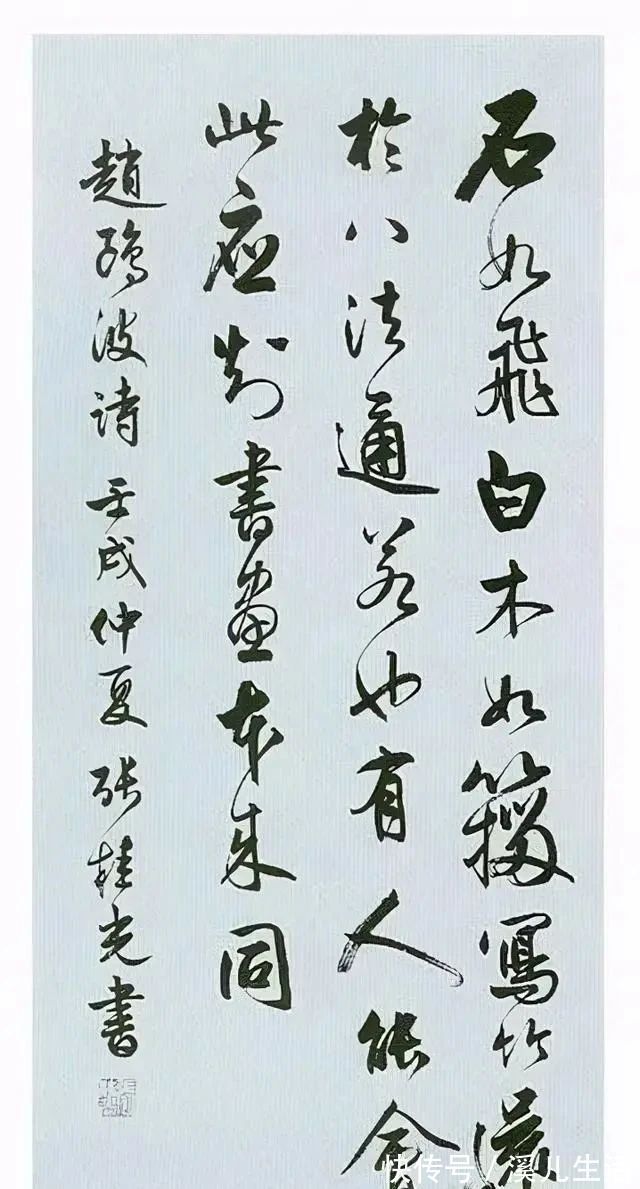 石如飛白木如籀寫竹還
於八法通若也有人能會
此应知書畫本来同
趙鷗波詩 壬戌仲夏 張桂光書
快传号 / 溪儿生活